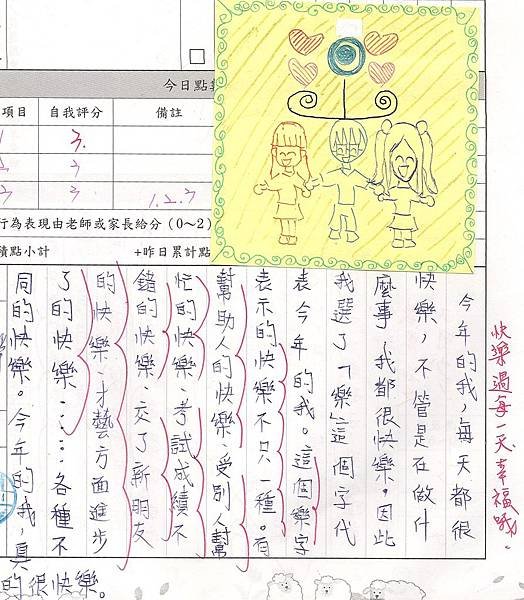 今日點
項目 自我評分 備註
3.
3
3 1.2.3
行為表現由老師或家長給分（0～2）
積點小計 +昨日累計點
今年的我，每天都很
快樂，不管是在做什
麼事，我都很快樂。因此
我選了「樂」這個字代
表今年的我。這個樂字
表示的快樂不只一種。有
幫助人的快樂、受別人幫
忙的快樂、考試成績不
錯的快樂、交了新朋友
的快樂、才藝方面進步
了的快樂……各種不
同的快樂。今年的我，真
的很快樂。
快樂過每一天、幸福哦。